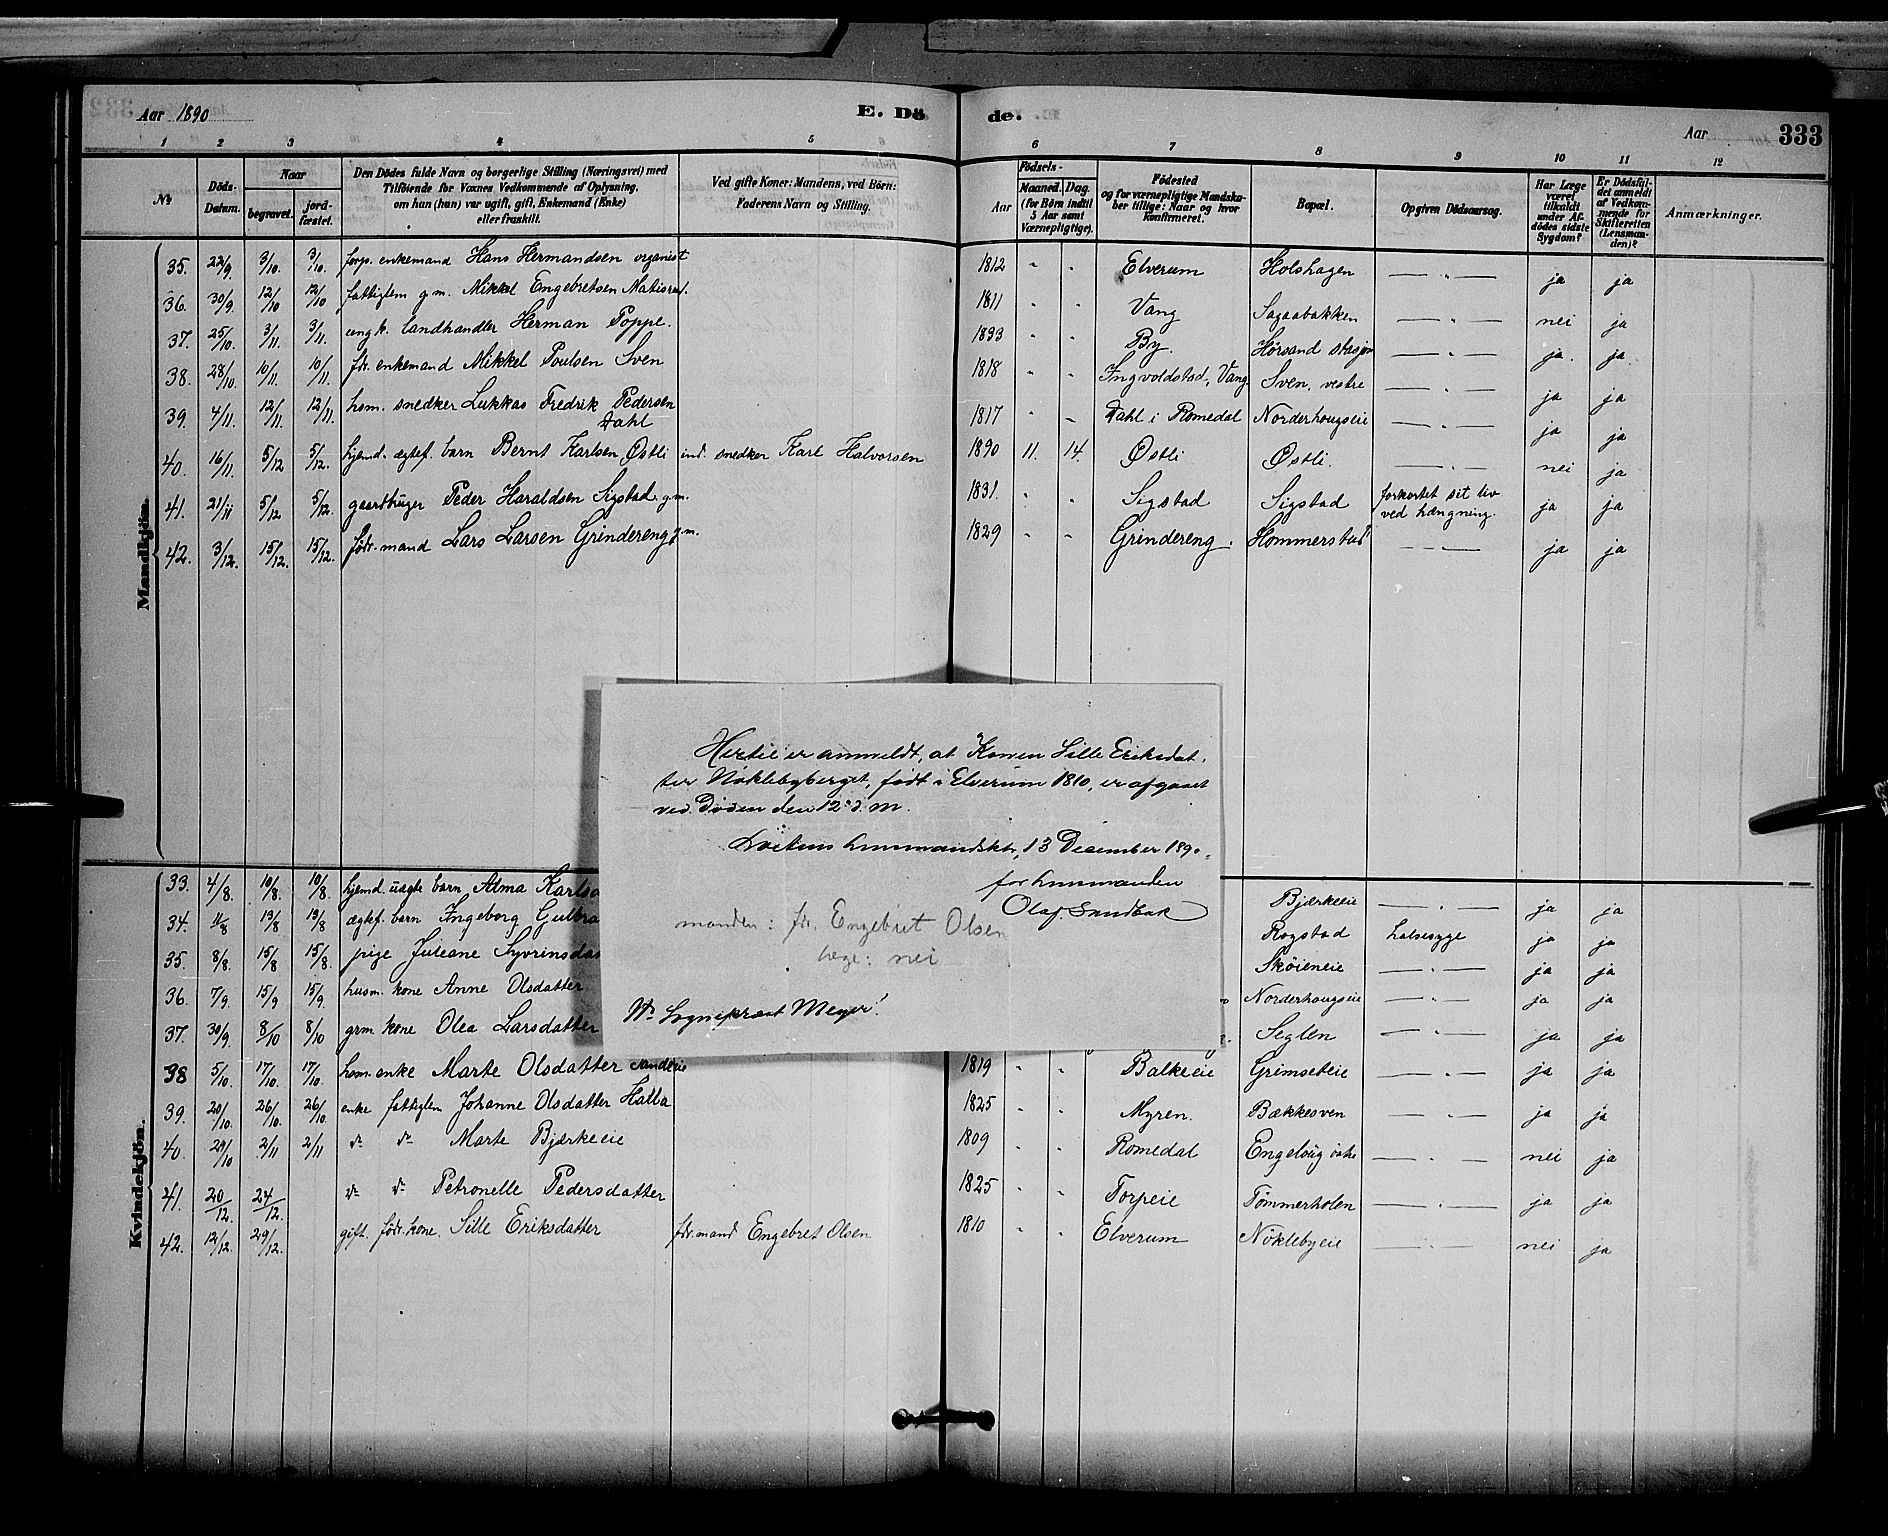 Aar 1890
E. Dö
de.
Aar
333
1 2 3 4 5
6 7 8 9 10 11 12
№
Döds-Datum.
Naar
begravet.
jord-fæstet.
Den Dödes fulde Navn og borgerlige Stilling (Næringsvei) med
Tilföiende for Voxnes Vedkommende af Oplysning,
om han (hun) var ugift, gift, Enkemand (Enke)
eller fraskilt.
Ved gifte Koner: Mandens, ved Börn:
Faderens Navn og Stilling.
Födsels-
Aar
Maaned. Dag.
(for Börn indtil
5 Aar samt
Værnepligtige).
Födested
og for værnepligtige Mandska-
ber tillige: Naar og hvor
konfirmeret.
Bopæl.
Opgiven Dödsaarsag.
Har Læge
været
tilkaldt
under Af-
dödes sidste
Sygdom?
Er Dödsfal-
det anmeldt
af Vedkom-
mende for
Skifteretten
(Lensman-
den)?
Anmærkninger.
Mandkjön.
35. 22/9 3/10. 3/10. forps. enkemand Hans Hermandsen organist 1812 " " Elverum Holshagen — " — ja ja
36. 30/9 12/10 12/10 fattiglem g.m. Mikkel Engebretsen 1811 " " Vang Sagaabakken — " — nei ja
37. 25/10. 3/11. 3/11. ungk. landhandler Herman Poppe. 1833 " " By. Hørsand stasjon — " — ja. ja.
38. 28/10. 10/11. 10/11. fdr. enkemand Mikkel Poulsen Sven 1818 " " Ingvoldstad, Vang Sven, vestre — " — ja ja
39. 4/11. 12/11. 12/11. hsm. snedker Lukkas Fredrik Pedersen
Dahl 1817 " " Dahl i Romedal Norderhougseie — " — ja ja
40. 16/11. 5/12 5/12. hjemd. ægtef. barn Bernt Karlsen Østli ind. snedker Karl Halvorsen 1890 11. 14. Østli Østli. — " — nei ja
41. 21/11 5/12 5/12. gaardbruger Peder Haraldsen Sigstad g.m. 1831. " " Sigstad Sigstad forkortet sit liv
ved hængning. ja ja
42. 3/12. 15/12. 15/12. födr. mand Lars Larsen Grindereng g.m. 1829 " " Grindereng. Hommerstad — " — ja ja
Hertil er anmeldt, at Konen Sille Eriksdat-
ter Nøklebyberget, født i Elverum 1810, er afgaaet
ved Døden den 12 d. M.
Løitens Lensmandsktr, 13 December 1890.
for Lensmanden
Olaf Sandbak
manden: fdr. Engebret Olsen
læge: nei
Hr Sogneprest Meyer!
Kvindekjön.
33. 4/8. 10/8. 10/8. hjemd. uægte barn Alma Karls Bjærkeeie — " — ja ja
34. 11/8 19/8 19/8 ægtef. barn Ingeborg Gulbra Rogstad halssyge ja ja
35. 8/8. 15/8 15/8. pige Juleane Syverinsdat Skøieneie — " — ja ja
36. 7/9. 15/9 15/9. husm. kone Anne Olsdatter Norderhougseie — " — ja ja
37. 30/9 8/10 8/10 grm. kone Olea Larsdatter Seglen — " — ja ja
38 5/10. 17/10. 17/10. hsm. enke Marte Olsdatter Sandeie 1819 " " Balkeeie Grimseteie — " — ja ja
39. 20/10. 26/10. 26/10 enke fattiglem Johanne Olsdatter Halla 1825 " " Myren. Bækkesven — " — ja ja
40. 29/10 2/11 2/11 do do Marte Bjærkeeie 1809 " " Romedal Engeloug östre — " — nei ja
41. 20/12. 24/12. do do Petronelle Pedersdatter 1825 " " Torpeie Tömmerholen — " — ja ja
42. 12/12. 29/12. gift. födr. kone. Sille Eriksdatter fdr. mand Engebret Olsen 1810 " " Elverum Nöklebyeie — " — nei ja